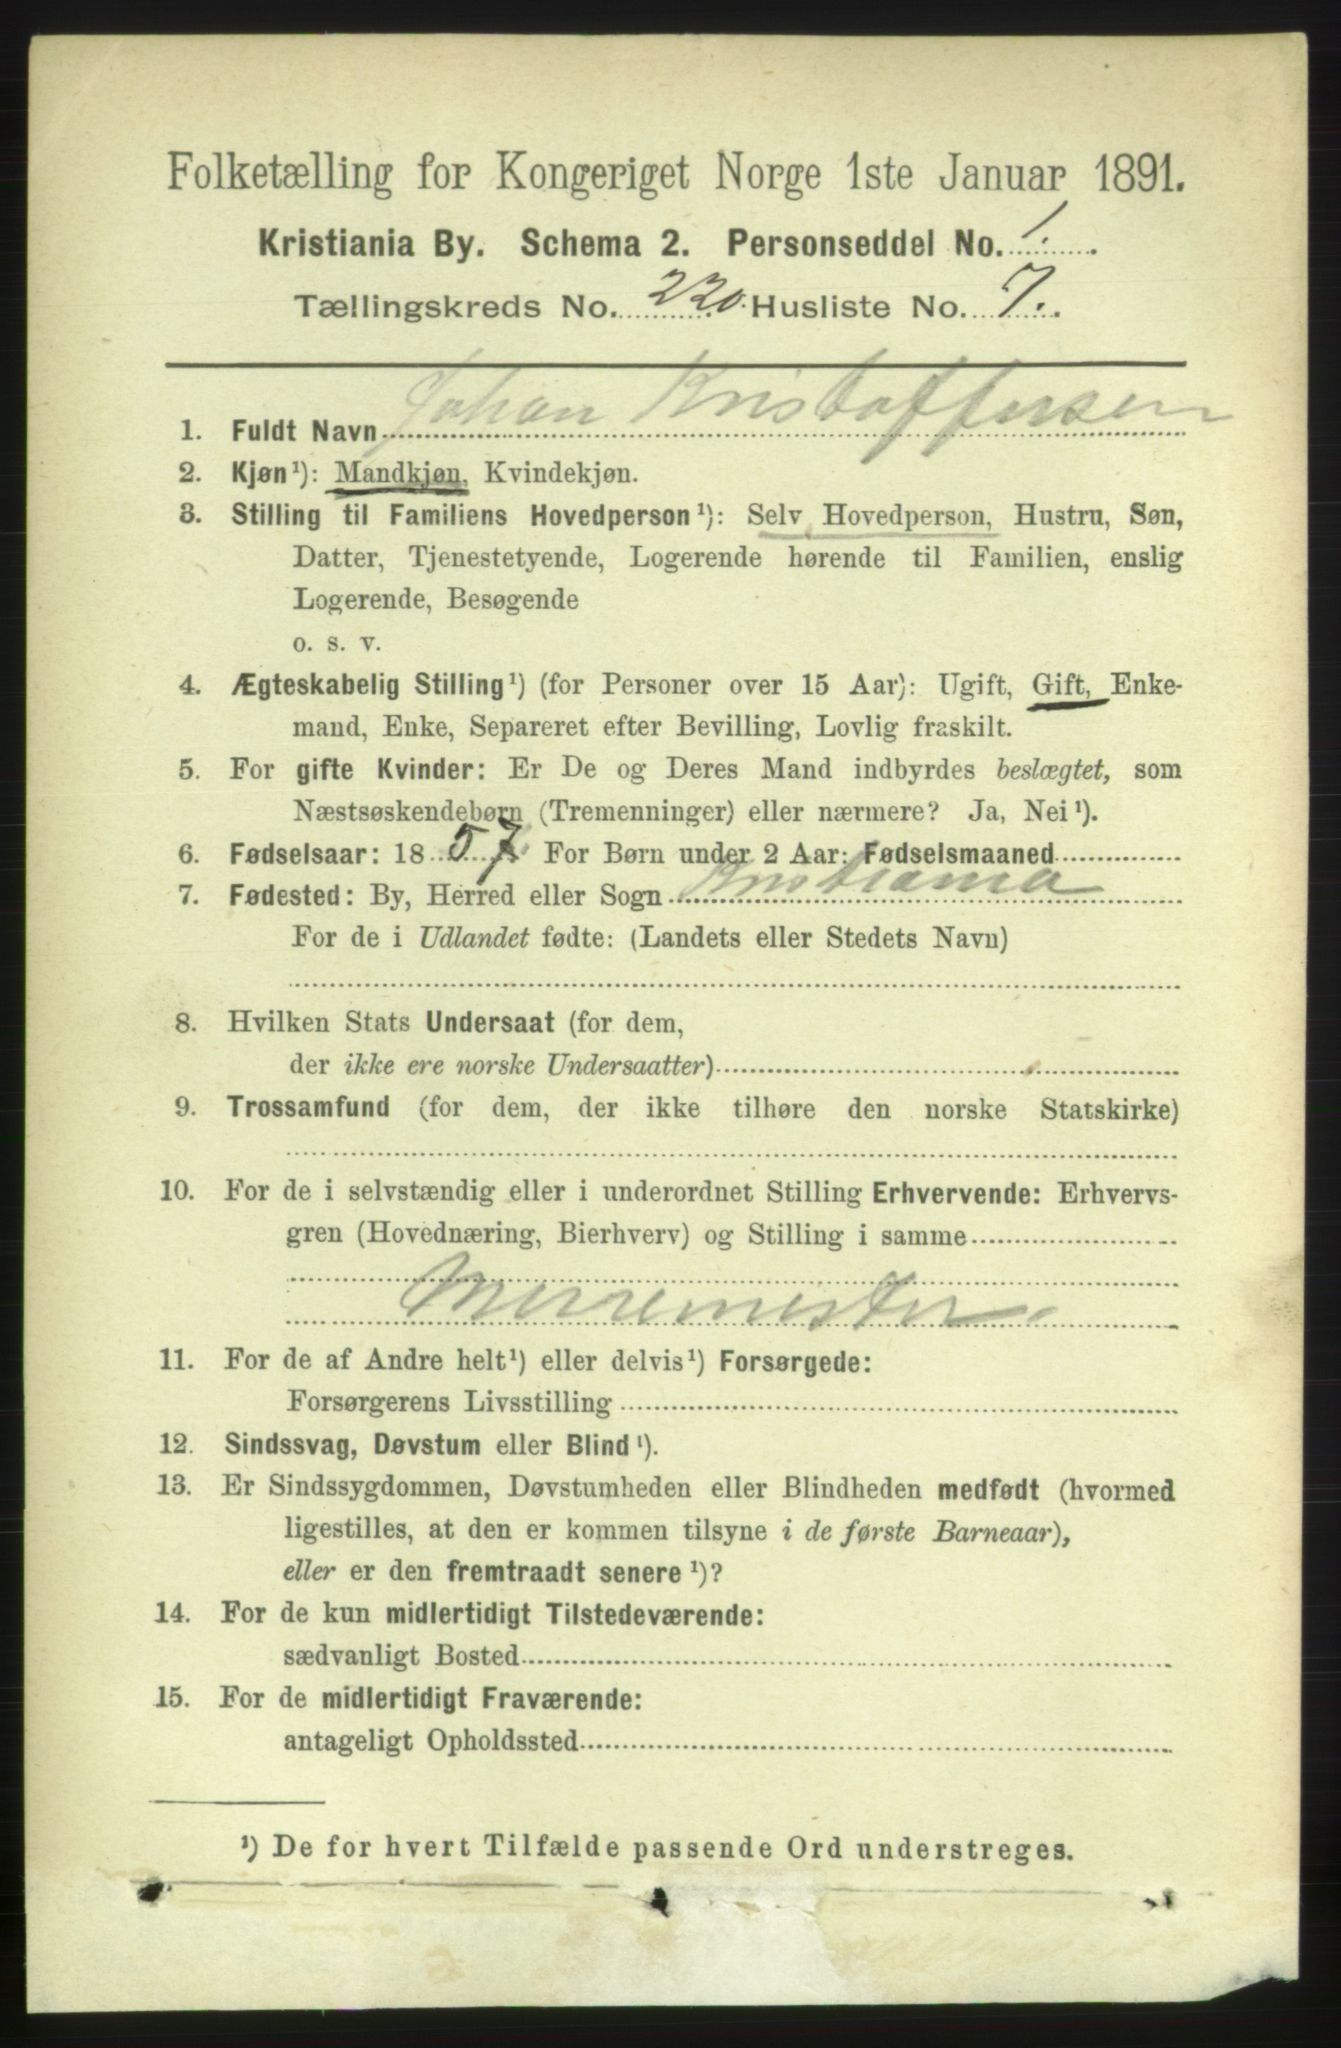 Folketælling for Kongeriget Norge 1ste Januar 1891.
Kristiania By. Schema 2. Personseddel No. 1.
Tællingskreds No. 220. Husliste No. 7.
1. Fuldt Navn Johan Kristoffersen
2. Kjøn¹): Mandkjøn, Kvindekjøn.
3. Stilling til Familiens Hovedperson¹): Selv Hovedperson, Hustru, Søn,
Datter, Tjenestetyende, Logerende hørende til Familien, enslig
Logerende, Besøgende
o. s. v.
4. Ægteskabelig Stilling¹) (for Personer over 15 Aar): Ugift, Gift, Enke-
mand, Enke, Separeret efter Bevilling, Lovlig fraskilt.
5. For gifte Kvinder: Er De og Deres Mand indbyrdes beslægtet, som
Næstsøskendebørn (Tremenninger) eller nærmere? Ja, Nei¹).
6. Fødselsaar: 1857. For Børn under 2 Aar: Fødselsmaaned
7. Fødested: By, Herred eller Sogn Kristiania
For de i Udlandet fødte: (Landets eller Stedets Navn)
8. Hvilken Stats Undersaat (for dem,
der ikke ere norske Undersaatter)
9. Trossamfund (for dem, der ikke tilhøre den norske Statskirke)
10. For de i selvstændig eller i underordnet Stilling Erhvervende: Erhvervs-
gren (Hovednæring, Bierhverv) og Stilling i samme
11. For de af Andre helt¹) eller delvis¹) Forsørgede:
Forsørgerens Livsstilling
12. Sindssvag, Døvstum eller Blind¹).
13. Er Sindssygdommen, Døvstumheden eller Blindheden medfødt (hvormed
ligestilles, at den er kommen tilsyne i de første Barneaar),
eller er den fremtraadt senere¹)?
14. For de kun midlertidigt Tilstedeværende:
sædvanligt Bosted
15. For de midlertidigt Fraværende:
antageligt Opholdssted
¹) De for hvert Tilfælde passende Ord understreges.